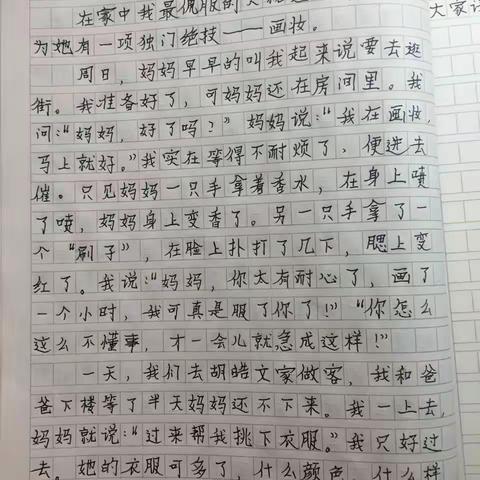 在家中我最佩服的
大家
为她有一项独门绝技——画妆。
周日，妈妈早早的叫我起来说要去逛
街。我准备好了，可妈妈还在房间里。我
问：“妈妈，好了吗？”妈妈说：“我在画妆，
马上就好。”我实在等得不耐烦了，便进去
催。只见妈妈一只手拿着香水，在身上喷
了喷，妈妈身上变香了。另一只手拿了一
个“刷子”，在脸上扑打了几下，腮上变
红了。我说：“妈妈，你太有耐心了，画了
一个小时，我可真是服了你了！”“你怎么
这么不懂事，才一会儿就急成这样！”
一天，我们去胡皓文家做客，我和爸
爸下楼等了半天妈妈还不下来。我一上去，
妈妈就说：“过来帮我挑下衣服。”我只好过
去。她的衣服可多了，什么颜色，什么样